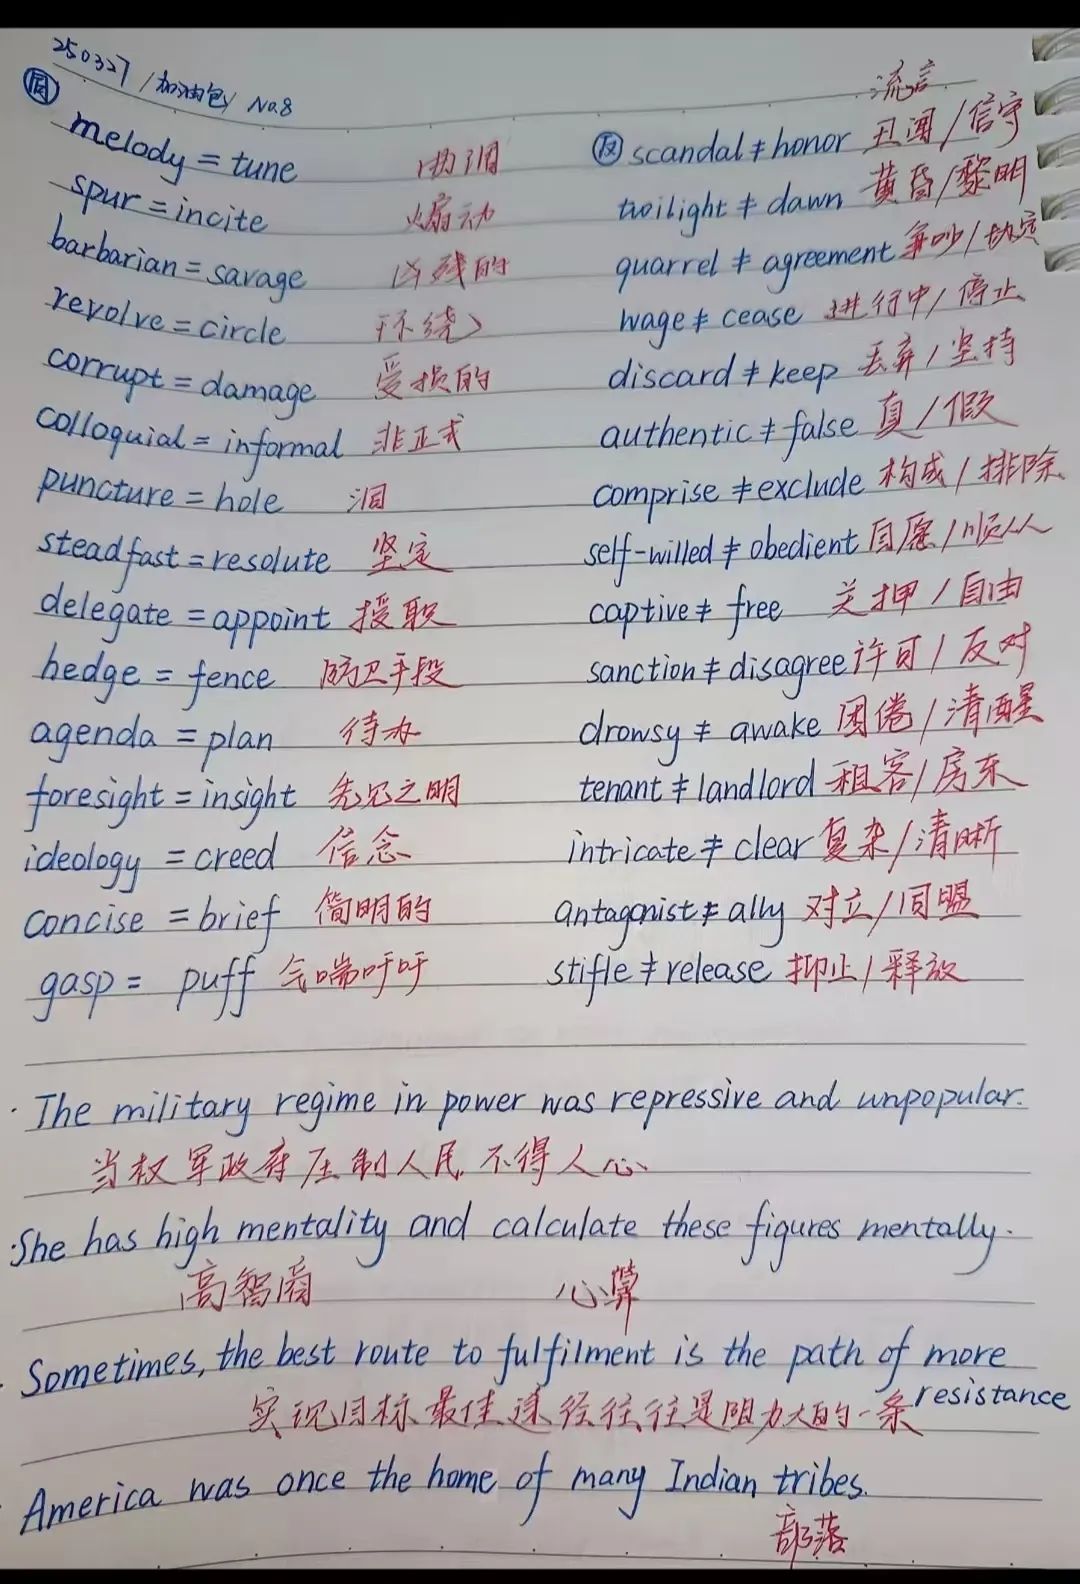 250327/加油包/No.8
同
melody = tune 曲调
spur = incite 煽动
barbarian = savage 凶残的
revolve = circle 环绕
corrupt = damage 受损的
colloquial = informal 非正式
puncture = hole 洞
steadfast = resolute 坚定
delegate = appoint 授职
hedge = fence 防卫手段
agenda = plan 待办
foresight = insight 先见之明
ideology = creed 信念
concise = brief 简明的
gasp = puff 气喘吁吁
流言
反 scandal ≠ honor 丑闻/信守
twilight ≠ dawn 黄昏/黎明
quarrel ≠ agreement 争吵/协定
wage ≠ cease 进行中/停止
discard ≠ keep 丢弃/坚持
authentic ≠ false 真/假
comprise ≠ exclude 构成/排除
self-willed ≠ obedient 自愿/顺从
captive ≠ free 关押/自由
sanction ≠ disagree 许可/反对
drowsy ≠ awake 困倦/清醒
tenant ≠ landlord 租客/房东
intricate ≠ clear 复杂/清晰
antagonist ≠ ally 对立/同盟
stifle ≠ release 抑止/释放
· The military regime in power was repressive and unpopular.
当权军政府压制人民,不得人心
· She has high mentality and calculate these figures mentally.
高智商 心算
· Sometimes, the best route to fulfilment is the path of more
resistance
实现目标最佳途径往往是阻力大的一条
· America was once the home of many Indian tribes.
部落